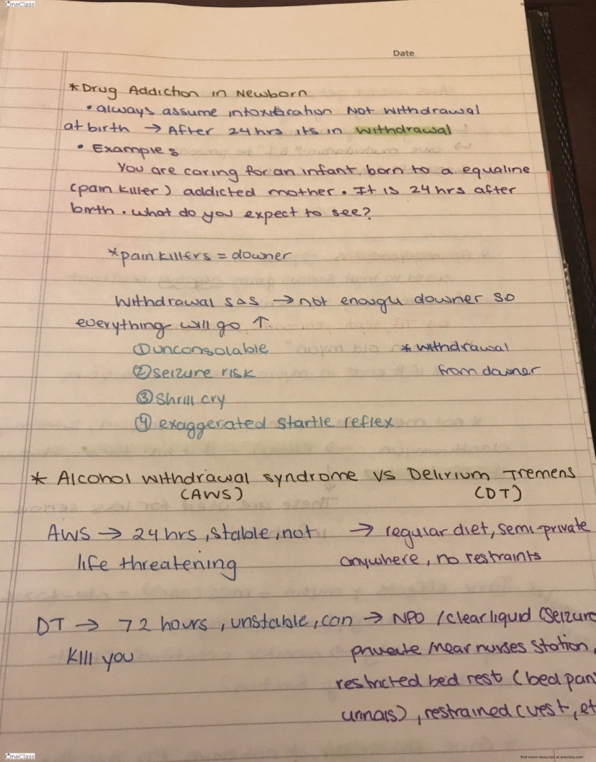 OneClass
Date
* Drug Addiction in Newborn
• always assume intoxication Not withdrawal
at birth → After 24 hrs its in withdrawal
• Example :
You are caring for an infant born to a equaline
(pain killer) addicted mother. It is 24 hrs after
birth. what do you expect to see?
*pain killers = downer
Withdrawal s&s → not enough downer so
everything will go ↑
① unconsolable * withdrawal
② seizure risk from downer
③ shrill cry
④ exaggerated startle reflex
* Alcohol withdrawal syndrome vs Delirium Tremens
(AWS) (DT)
AWS → 24 hrs, stable, not → regular diet, semi-private
life threatening anywhere, no restraints
DT → 72 hours, unstable, can → NPO / clear liquid (seizure
kill you private near nurses station,
restricted bed rest (bed pan
urinals), restrained (vest, et
OneClass
find more resources at oneclass.com
OneClass